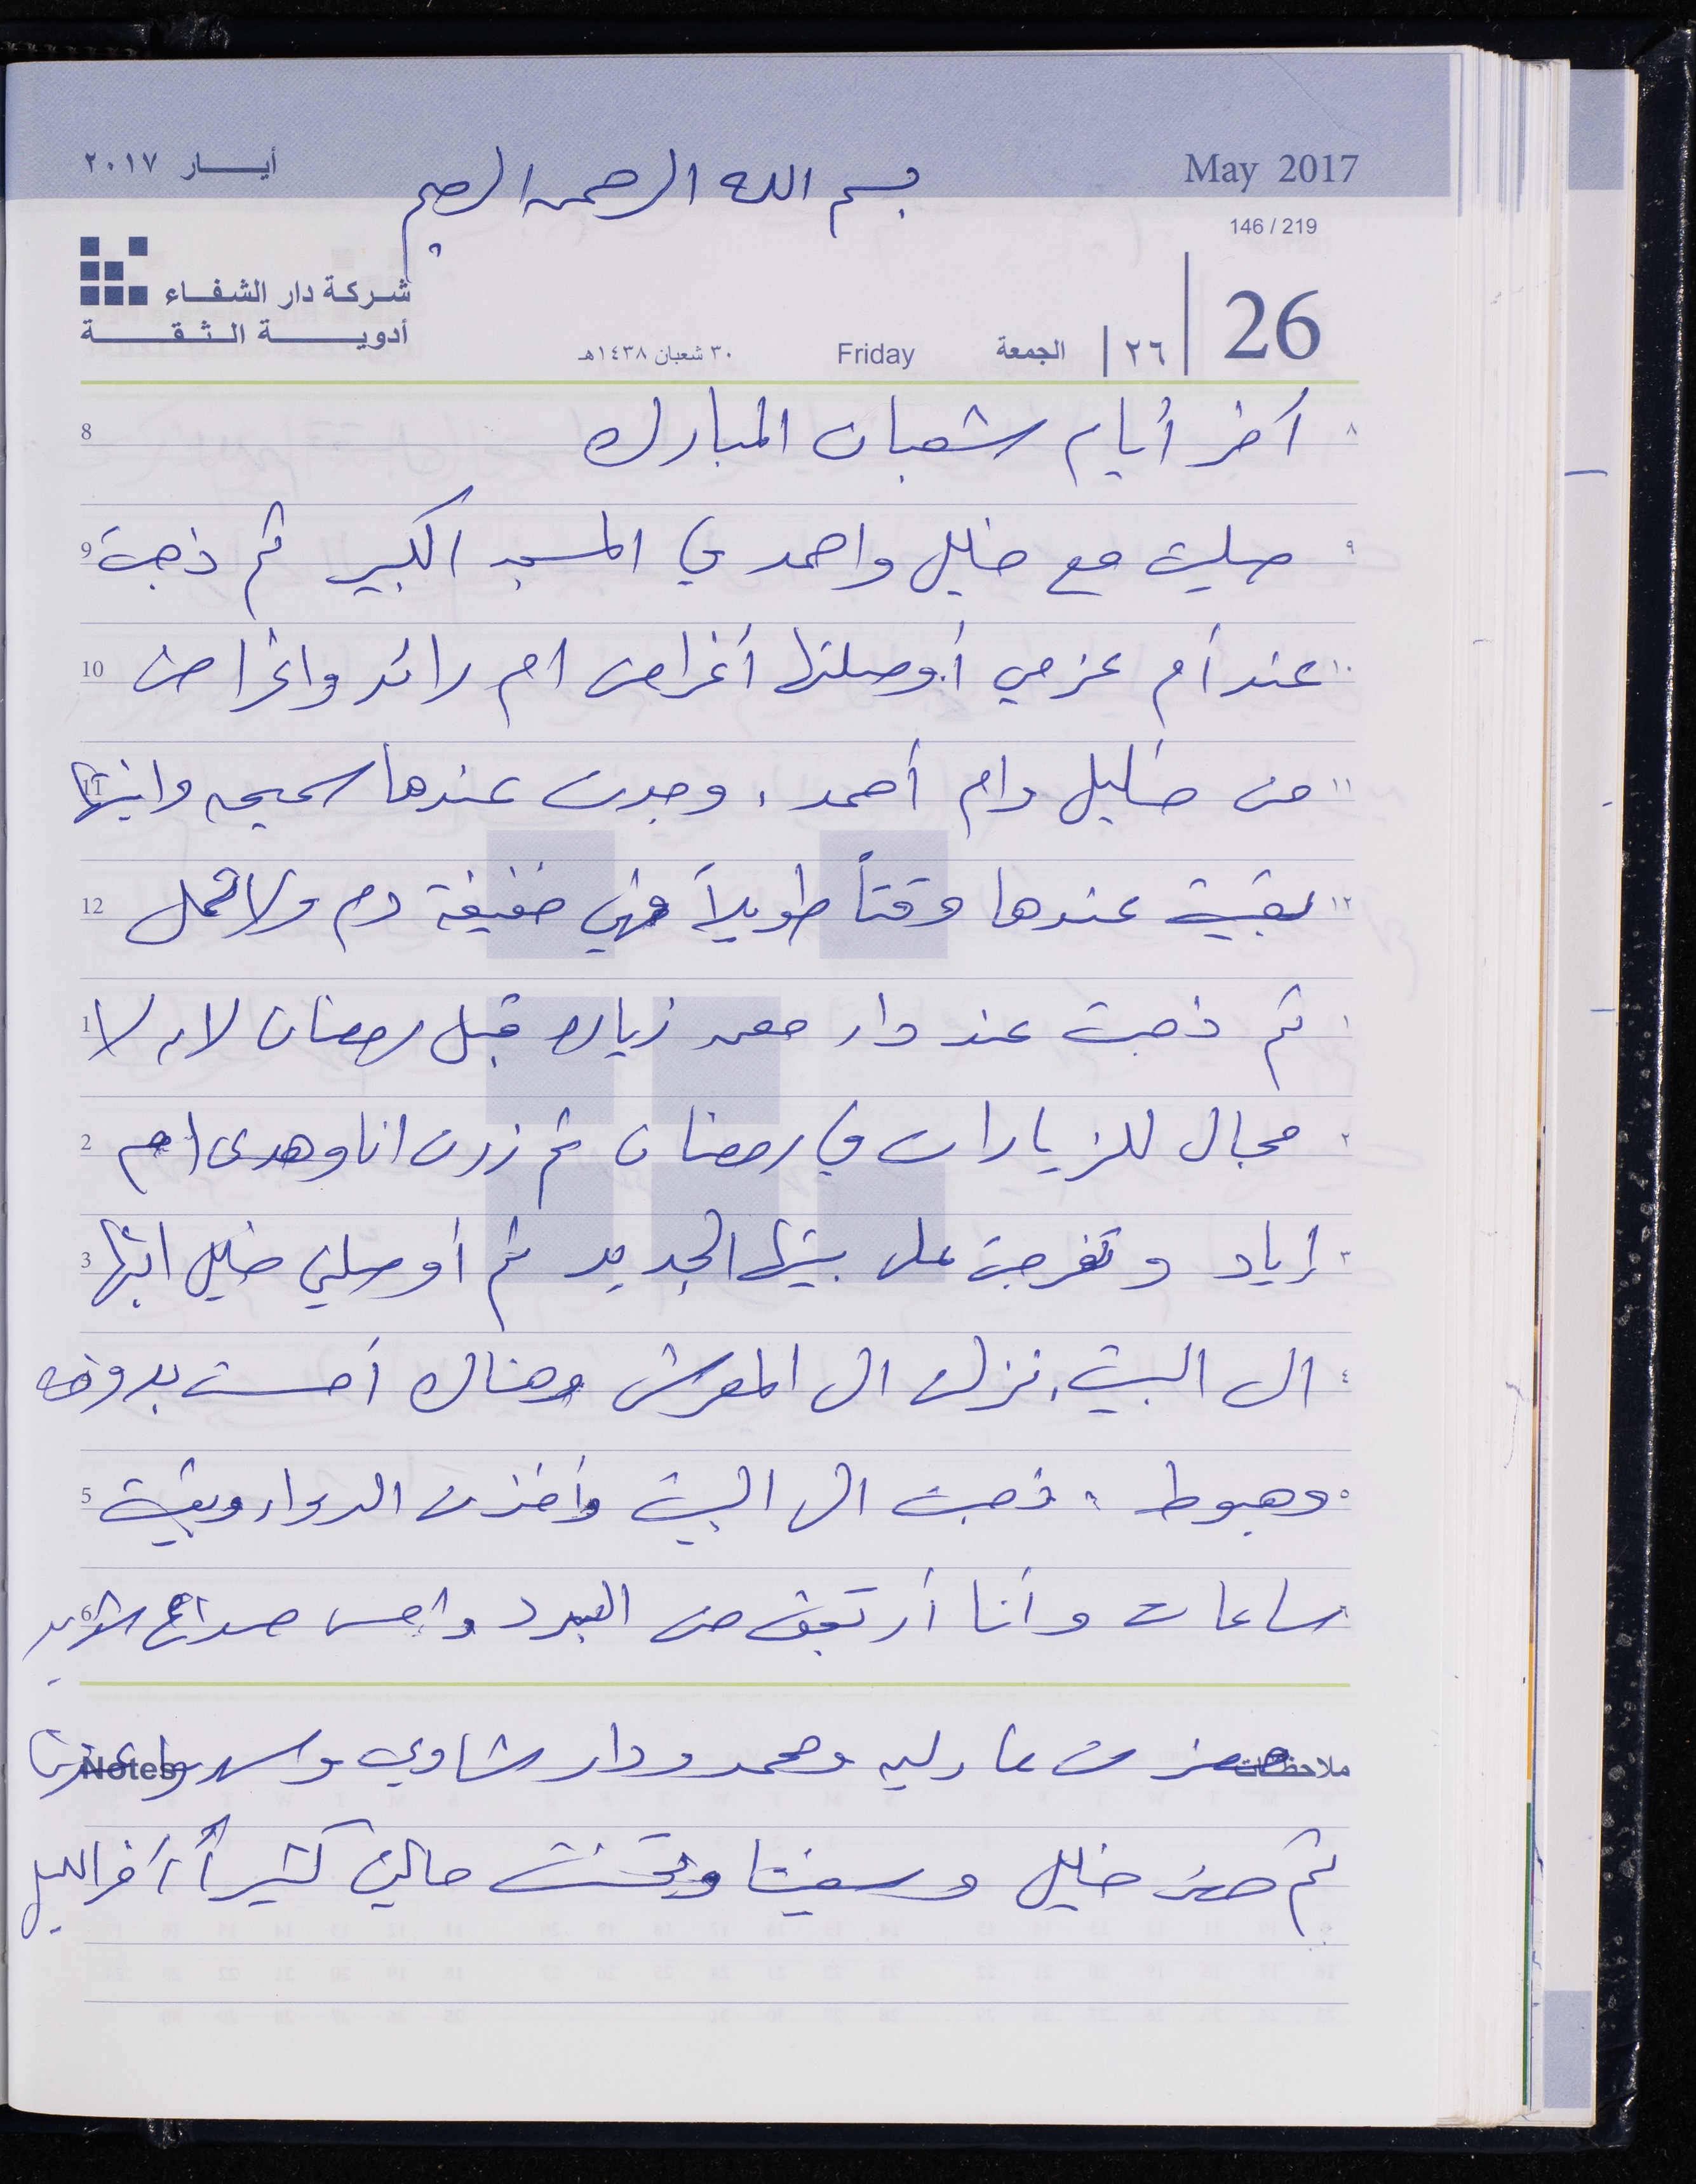 أيـــار ٢٠١٧
بسم الله الرحمن الرحيم
May 2017
146 / 219
شركة دار الشفاء
أدوية الثقة
٣٠ شعبان ١٤٣٨هـ Friday الجمعة ٢٦ 26
٨ آخر أيام شعبان المبارك 8
٩ صليت مع خليل واحمد في المسجد الكبير ثم ذهبت 9
١٠ عند أم عزمي أوصلتها أغراض ام رائد واغراض 10
١١ من خليل وام أحمد . وجدت عندها سميحه وابنتها 11
١٢ بقيت عندها وقتاً طويلاً فهي خفيفة دم ولا تمل 12
١ ثم ذهبت عند دار زياره قبل رمضان لانه لا 1
٢ مجال للزيارات في رمضان ثم زرت انا وهدى ام 2
٣ إياد وتفرجت على بيتها الجديد ثم أوصلني خليل ابنها 3
٤ الى البيت. نزلت الى المعرش وهناك أحسست بدوخه
٥ وهبوط . ذهبت الى البيت وأخذت الدواء وبقيت 5
ساعات وأنا أرتجف من البرد واحس صداع شديد 6
ملاحظات Notes
حضرت ومحمد ودار شاوي
ثم حضر خليل وتحسنت حالتي كثيراً آخر الليل